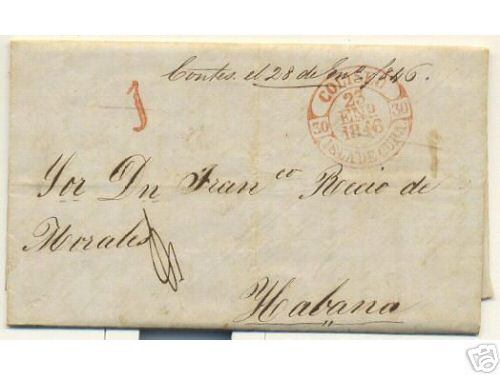 Contes. el 28 de En.o 1846.
1
CORREO
30 30
23
ENO
1846
ISLA DE CUBA
Sor Dn Franco Recio de
Morales
Habana